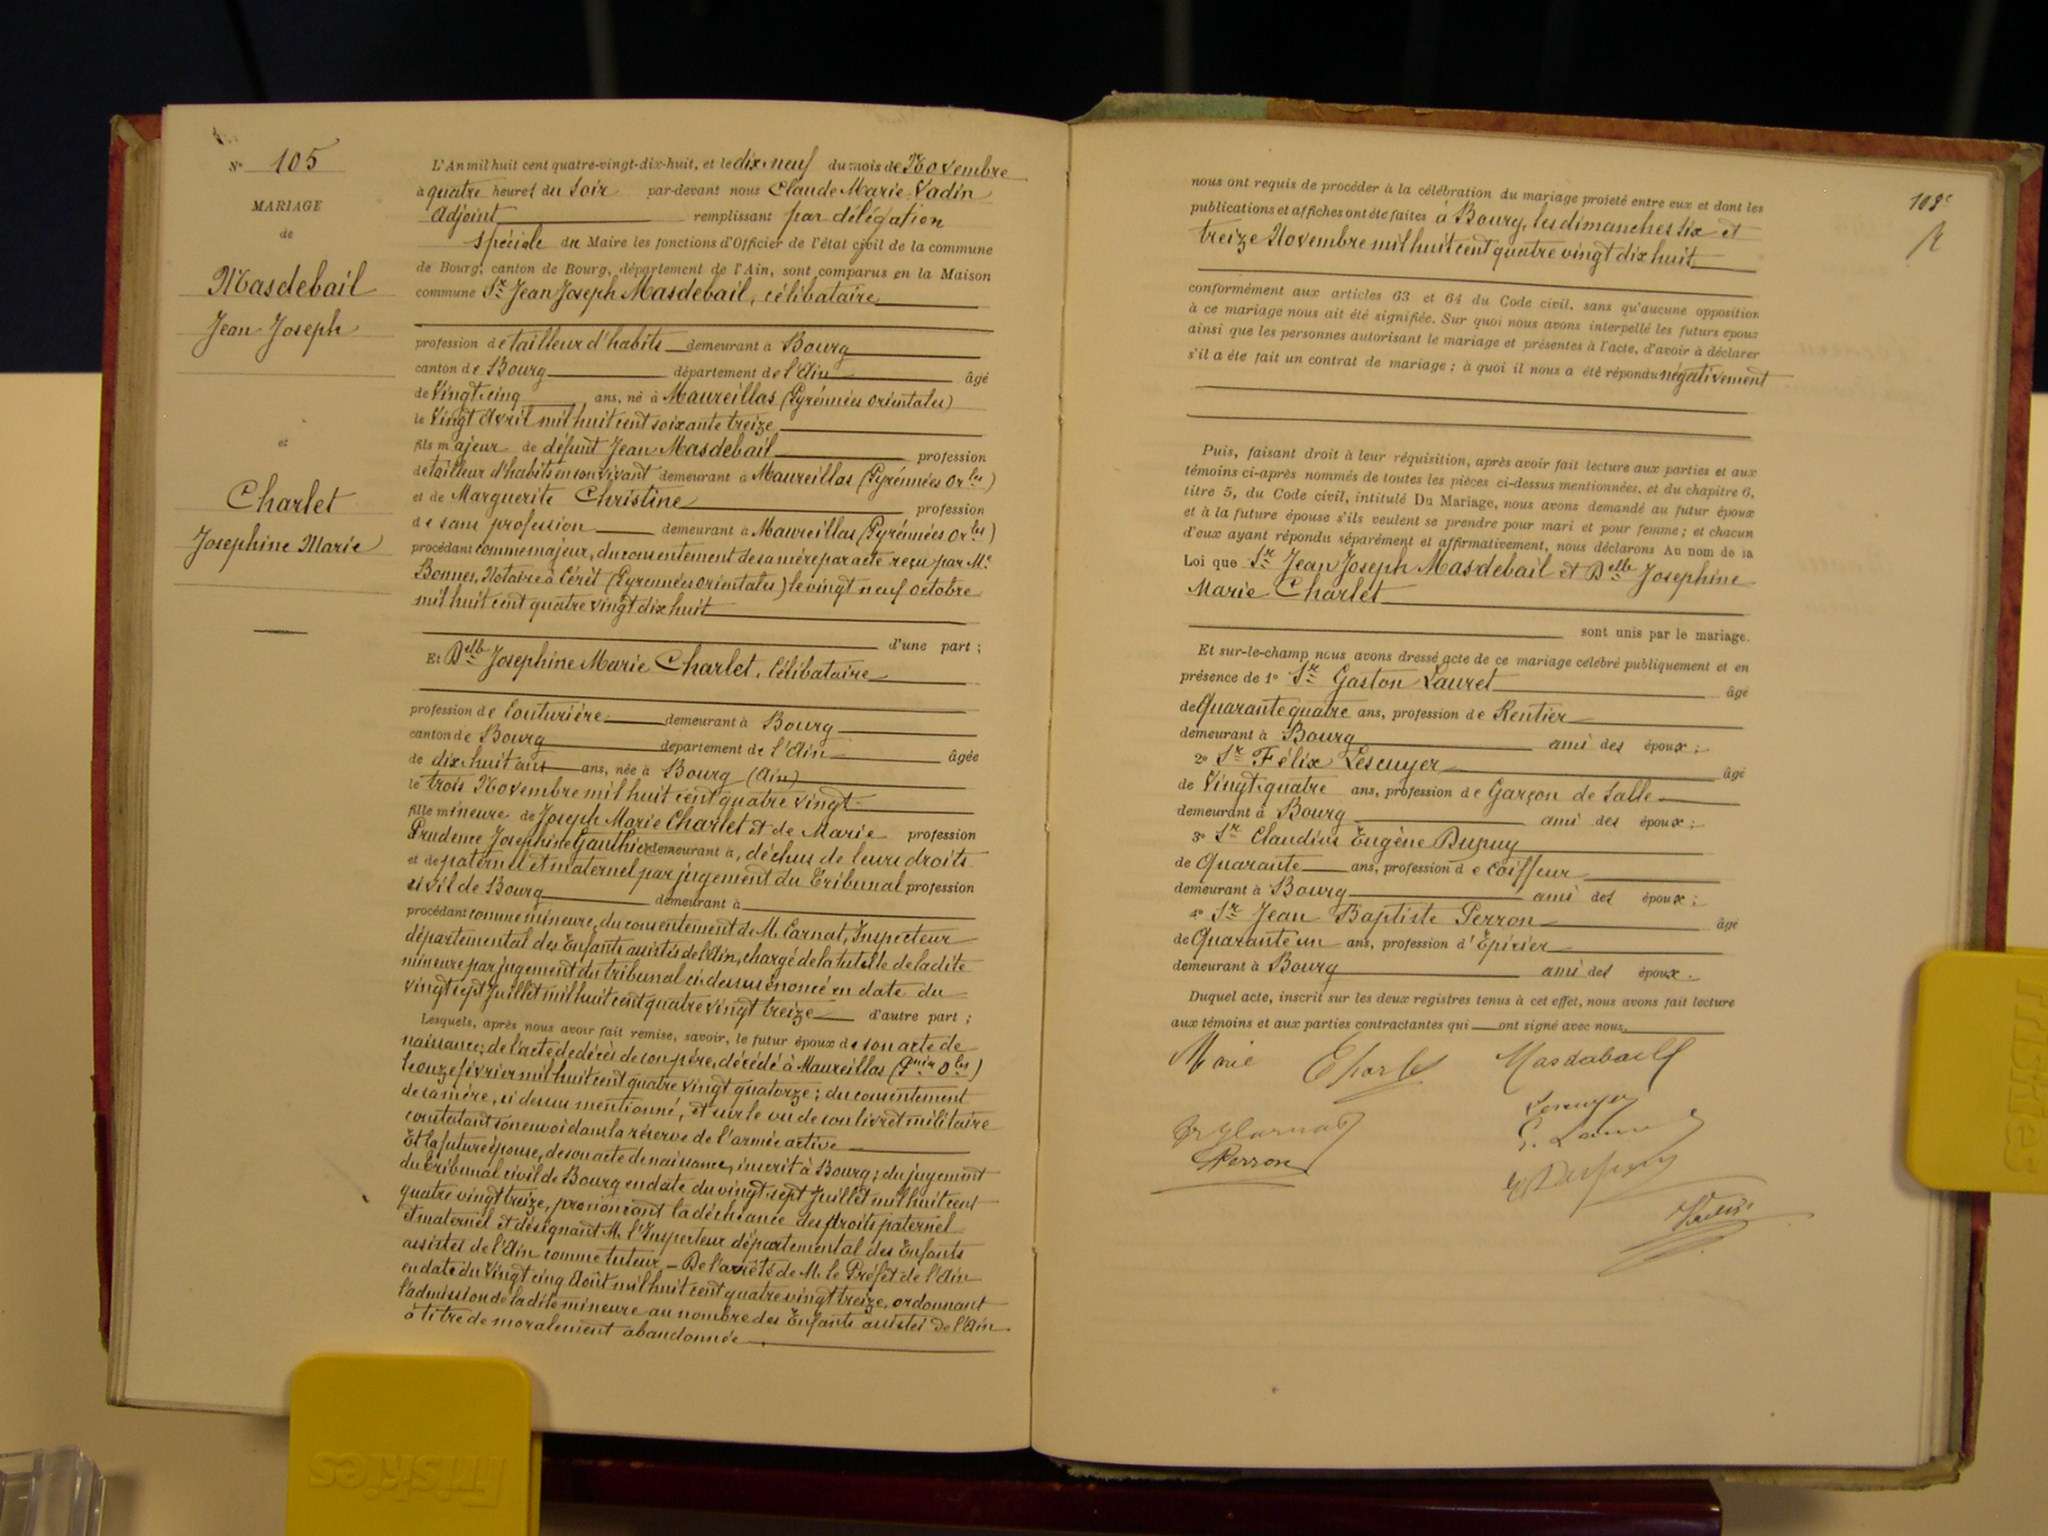 Nº 105
MARIAGE
de
Masdebail
Jean Joseph
et
Charlet
Josephine Marie
L'An mil huit cent quatre-vingt-dix-huit, et le dix neuf du mois de Novembre
à quatre heures du soir par-devant nous Claude Marie Vadin
Adjoint remplissant par délégation
spéciale du Maire les fonctions d'Officier de l'état civil de la commune
de Bourg, canton de Bourg, département de l'Ain, sont comparus en la Maison
commune Sr Jean Joseph Masdebail, célibataire
profession de tailleur d'habits demeurant à Bourg
canton de Bourg département de l'Ain âgé
de Vingt cinq ans, né à Maureillas (Pyrénnées Orientales)
le Vingt Avril mil huit cent soixante treize
fils majeur de défunt Jean Masdebail profession
de tailleur d'habits en son vivant demeurant à Maureillas (Pyrénnées Orles)
et de Marguerite Christine profession
de sans profession demeurant à Maureillas (Pyrénnées Orles)
procédant comme majeur, du consentement de sa mère par acte reçu par Me
Bonnes, Notaire à Cérét (Pyrennées Orientales) le vingt neuf octobre
mil huit cent quatre vingt dix huit
d'une part ;
Et Delle Josephine Marie Charlet, Célibataire
profession de Couturière demeurant à Bourg
canton de Bourg département de l'Ain âgée
de dix huit ans ans, née à Bourg (Ain)
le trois Novembre mil huit cent quatre vingt
fille mineure de Joseph Marie Charlet et de Marie profession
Prudence Josephine Gauthier demeurant à, déchus de leurs droits
et de paternel et maternel par jugement du Tribunal profession
civil de Bourg demeurant à
procédant comme mineure, du consentement de M. Carnat, Inspecteur
départemental des Enfants assistés de l'Ain, chargé de la tutelle de ladite
mineure par jugement du tribunal ci-dessus énoncé en date du
vingt sept Juillet mil huit cent quatre vingt treize d'autre part ;
Lesquels, après nous avoir fait remise, savoir, le futur époux de son acte de
naissance ; de l'acte de décès de son père, décédé à Maureillas (Pnées Oles)
le onze février mil huit cent quatre vingt quatorze ; du consentement
de sa mère, ci dessus mentionné, et sur le vu de son livret militaire
constatant son envoi dans la réserve de l'armée active
Et la future épouse, de son acte de naissance, inscrit à Bourg ; du jugement
du Tribunal civil de Bourg en date du vingt sept Juillet mil huit cent
quatre vingt treize, prononçant la déchéance des droits paternel
et maternel et désignant M. l'Inspecteur départemental des Enfants
assistés de l'Ain comme tuteur _ De l'arrêté de M. le Préfet de l'Ain
en date du Vingt cinq Août mil huit cent quatre vingt treize, ordonnant
l'admission de ladite mineure au nombre des Enfants assistés de l'Ain
à titre de moralement abandonnée
nous ont requis de procéder à la célébration du mariage projeté entre eux et dont les
publications et affiches ont été faites à Bourg, les dimanches six et
treize Novembre mil huit cent quatre vingt dix huit
conformément aux articles 63 et 64 du Code civil, sans qu'aucune opposition
à ce mariage nous ait été signifiée. Sur quoi nous avons interpellé les futurs époux
ainsi que les personnes autorisant le mariage et présentes à l'acte, d'avoir à déclarer
s'il a été fait un contrat de mariage ; à quoi il nous a été répondu négativement
Puis, faisant droit à leur réquisition, après avoir fait lecture aux parties et aux
témoins ci-après nommés de toutes les pièces ci-dessus mentionnées, et du chapitre 6,
titre 5, du Code civil, intitulé Du Mariage, nous avons demandé au futur époux
et à la future épouse s'ils veulent se prendre pour mari et pour femme ; et chacun
d'eux ayant répondu séparément et affirmativement, nous déclarons Au nom de la
Loi que Sr Jean Joseph Masdebail et Delle Josephine
Marie Charlet
sont unis par le mariage.
Et sur-le-champ nous avons dressé acte de ce mariage célébré publiquement et en
présence de 1º Sr Gaston Lauret âgé
de Quarante quatre ans, profession de Rentier
demeurant à Bourg ami des époux ;
2º Sr Félix Lescuyer âgé
de Vingt quatre ans, profession de Garçon de Salle
demeurant à Bourg ami des époux ;
3º Sr Claudius Eugène Dupuy
de Quarante ans, profession de Coiffeur
demeurant à Bourg ami des époux ;
4º Sr Jean Baptiste Perron âgé
de Quarante un ans, profession d'Epicier
demeurant à Bourg ami des époux.
Duquel acte, inscrit sur les deux registres tenus à cet effet, nous avons fait lecture
aux témoins et aux parties contractantes qui ont signé avec nous.
Marie Charlet Masdabaill
Lescuyer
Perron
E Dupuy
Vadin
Friskies
Friskies